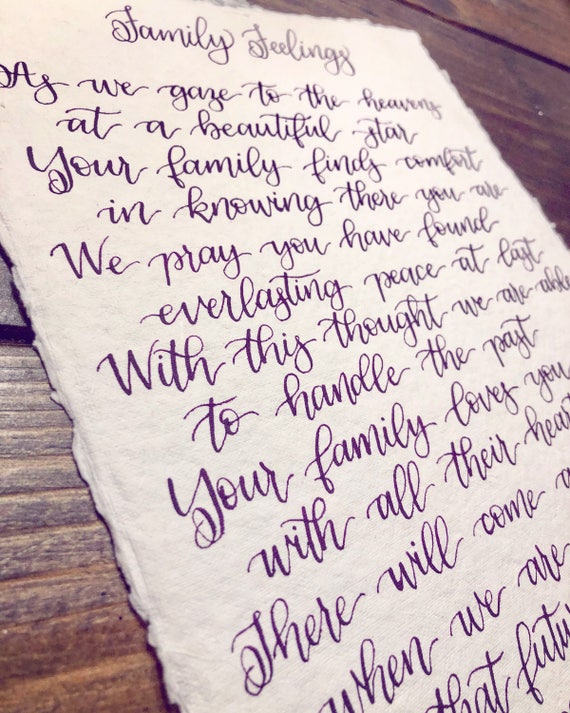 Family Feelings
As we gaze to the heavens
at a beautiful star
Your family finds comfort
in knowing there you are
We pray you have found
everlasting peace at last
With this thought we are able
to handle the past
Your family loves you
with all their heart
There will come a
when we are
that futu